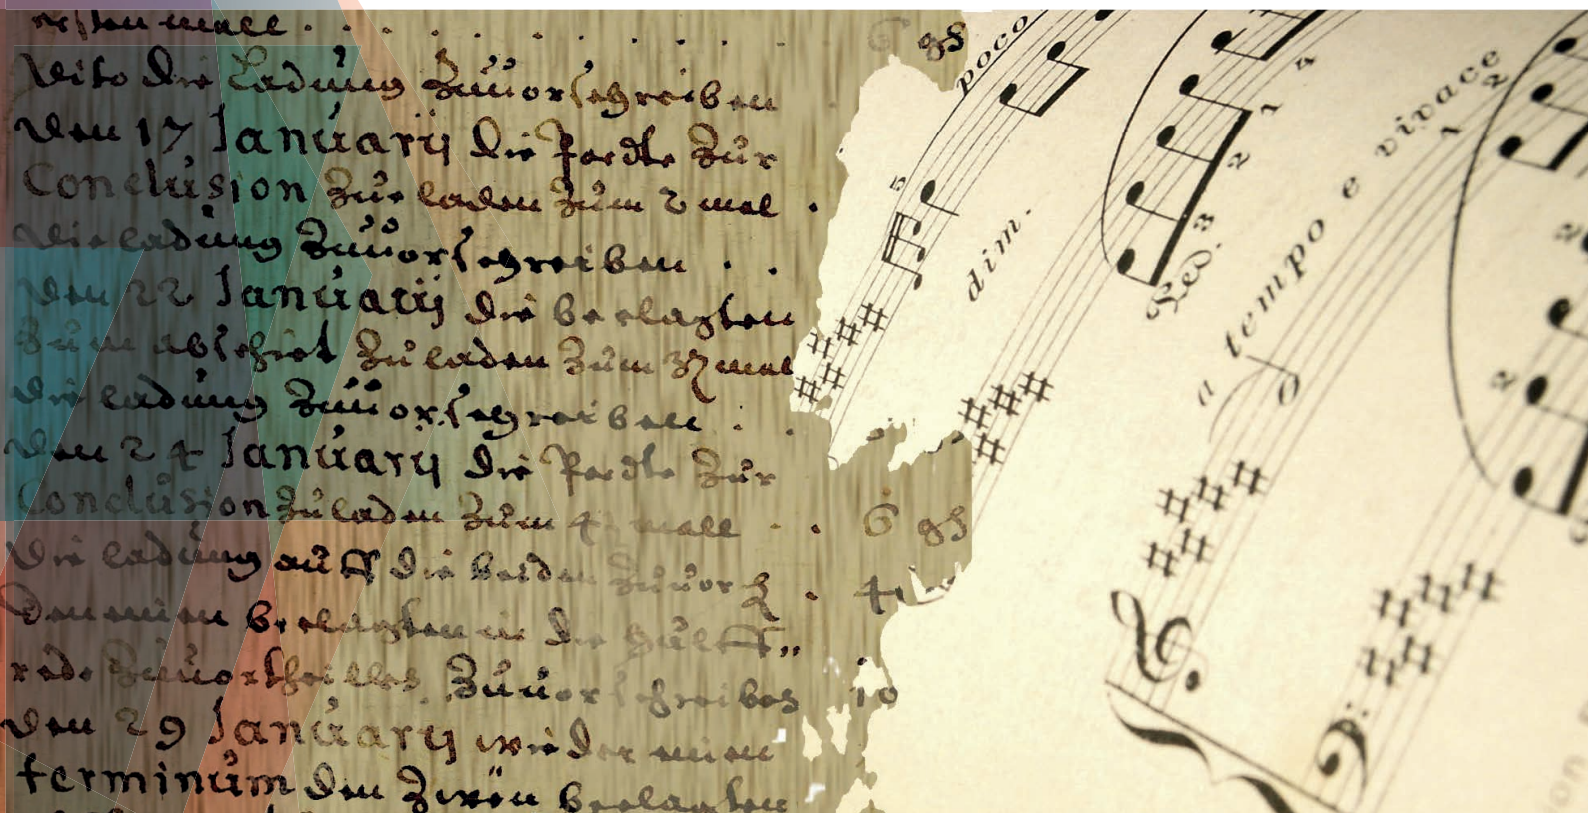 ersten mall . . . . . . . . . 6 gl
Dito die Ladung Zuuorschreiben
Den 17 Januarij die Partte Zur
Conclusion Zue laden Zum 2 mal .
Die ladung Zuuorschreiben . .
Den 22 Januarij die beclagten
Zum abschiet Zu laden Zum 3 mal
die ladung Zuuorschreiben . .
Den 24 Januarij die Partte Zur
Conclusion Zu laden Zum 4 mall . . 6 gl
Die ladung auff die beiden . 4
beclagten in die
Zuuorschreiben 10
Den 29 Januarij wieder einen
terminum den Zween beclagten
poco
5
dim.
4
1
2
3
Ped.
a tempo e vivace
2
1
2
2